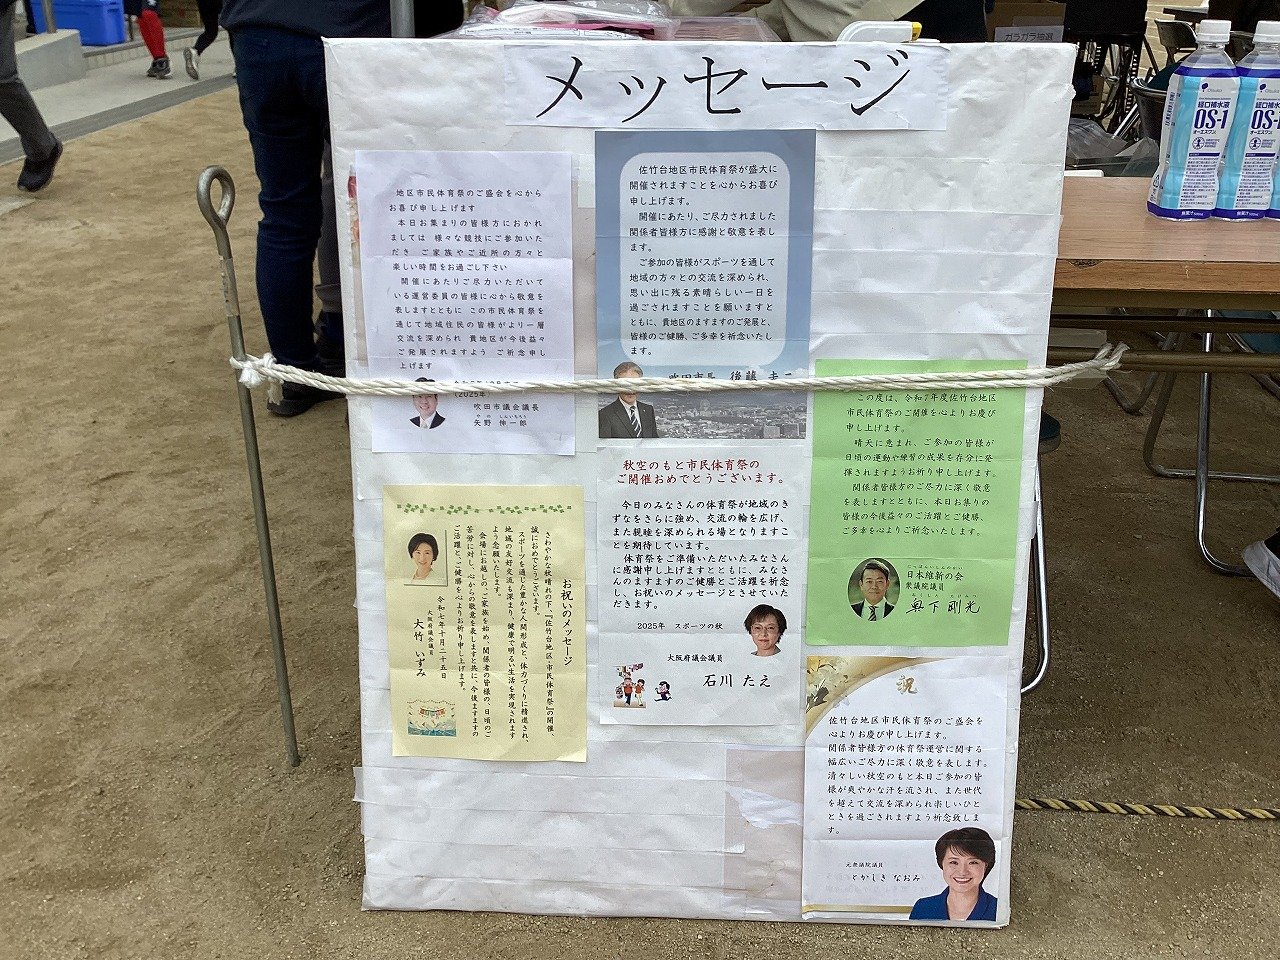 メッセージ
ガラガラ抽選
地区市民体育祭のご盛会を心から
お喜び申し上げます
本日お集まりの皆様方におかれ
ましては 様々な競技にご参加いた
だき ご家族やご近所の方々と
楽しい時間をお過ごし下さい
開催にあたりご尽力いただいて
いる運営委員の皆様に心から敬意を
表しますとともに この市民体育祭を
通じて地域住民の皆様がより一層
交流を深められ 貴地区が今後益々
ご発展されますよう ご祈念申し
上げます
(2025年
吹田市議会議長
やの しんいちろう
矢野 伸一郎
佐竹台地区市民体育祭が盛大に
開催されますことを心からお喜び
申し上げます。
開催にあたり、ご尽力されました
関係者皆様方に感謝と敬意を表し
ます。
ご参加の皆様がスポーツを通して
地域の方々との交流を深められ、
思い出に残る素晴らしい一日を
過ごされますことを願いますと
ともに、貴地区のますますのご発展と、
皆様のご健勝、ご多幸を祈念いたし
ます。
吹田市長 後藤 圭二
この度は、令和7年度佐竹台地区
市民体育祭のご開催を心よりお慶び
申し上げます。
晴天に恵まれ、ご参加の皆様が
日頃の運動や練習の成果を存分に発
揮されますようお祈り申し上げます。
関係者皆様方のご尽力に深く敬意
を表しますとともに、本日お集りの
皆様の今後益々のご活躍とご健勝、
ご多幸を心よりご祈念いたします。
にっぽんいしんのかい
日本維新の会
衆議院議員
奥下 剛光
お祝いのメッセージ
さわやかな秋晴れの下、『佐竹台地区・市民体育祭』の開催、
誠におめでとうございます。
スポーツを通じた豊かな人間形成と、体力づくりに精進され、
地域の友好交流も深まり、健康で明るい生活を実現されます
よう念願いたします。
会場にお越しの、ご家族を始め、関係者の皆様の、日頃のご
苦労に対し、心からの敬意を表しますと共に、今後ますますの
ご活躍と、ご健勝を心よりお祈り申し上げます。
令和七年十月二十五日
大阪府議会議員
大竹 いずみ
秋空のもと市民体育祭の
ご開催おめでとうございます。
今日のみなさんの体育祭が地域のき
ずなをさらに強め、交流の輪を広げ、
また親睦を深められる場となりますこ
とを期待しています。
体育祭をご準備いただいたみなさん
に感謝申し上げますとともに、みなさ
んのますますのご健勝とご活躍を祈念
し、お祝いのメッセージとさせていた
だきます。
2025年 スポーツの秋
大阪府議会議員
石川 たえ
祝
佐竹台地区市民体育祭のご盛会を
心よりお慶び申し上げます。
関係者皆様方の体育祭運営に関する
幅広いご尽力に深く敬意を表します。
清々しい秋空のもと本日ご参加の皆
様が爽やかな汗を流され、また世代
を越えて交流を深められ楽しいひと
ときを過ごされますよう祈念致しま
す。
元衆議院議員
とかしき なおみ
Otsuka
経口補水液
OS-1
オーエスワン
無果汁
Otsuka
経口補水液
OS-1
オーエスワン
無果汁